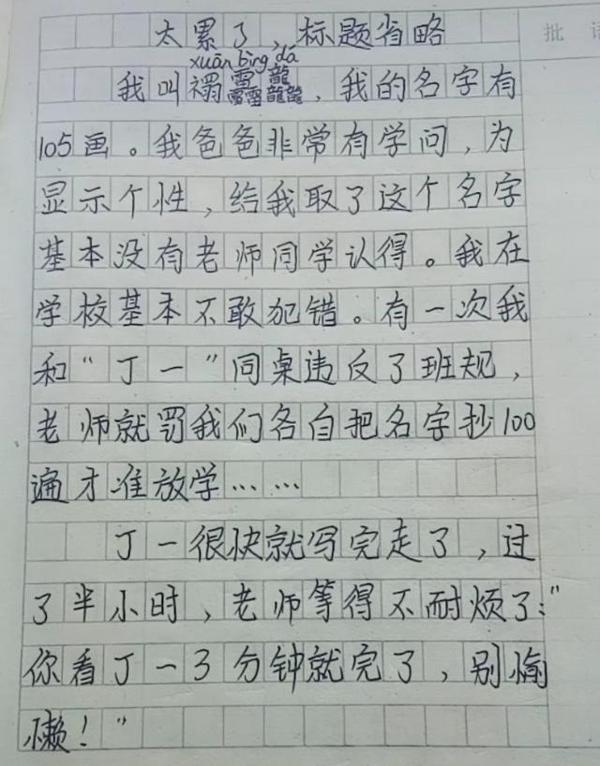 批
太累了，标题省略
xuān bìng dá
我叫禤靐龘，我的名字有
105画。我爸爸非常有学问，为
显示个性，给我取了这个名字
基本没有老师同学认得。我在
学校基本不敢犯错。有一次我
和“丁一”同桌违反了班规，
老师就罚我们各自把名字抄100
遍才准放学……
丁一很快就写完走了，过
了半小时，老师等得不耐烦了：“
你看丁一3分钟就完了，别愉
懒！”